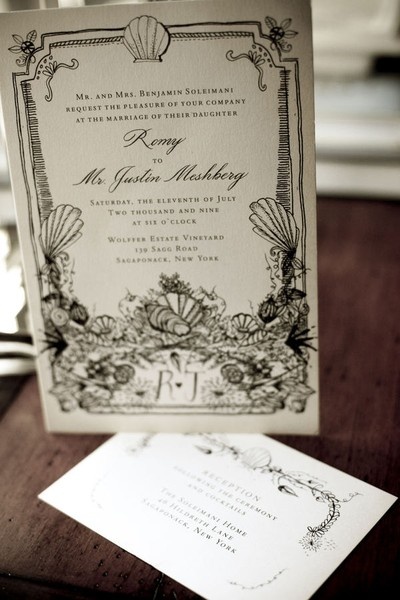 Mr. and Mrs. Benjamin Soleimani
request the pleasure of your company
at the marriage of their daughter
Romy
to
Mr. Justin Meshberg
Saturday, the eleventh of July
Two thousand and nine
at six o'clock
Wolffer Estate Vineyard
139 Sagg Road
Sagaponack, New York
R J
Reception
following the ceremony
and cocktails
The Soleimani Home
48 Hildreth Lane
Sagaponack, New York